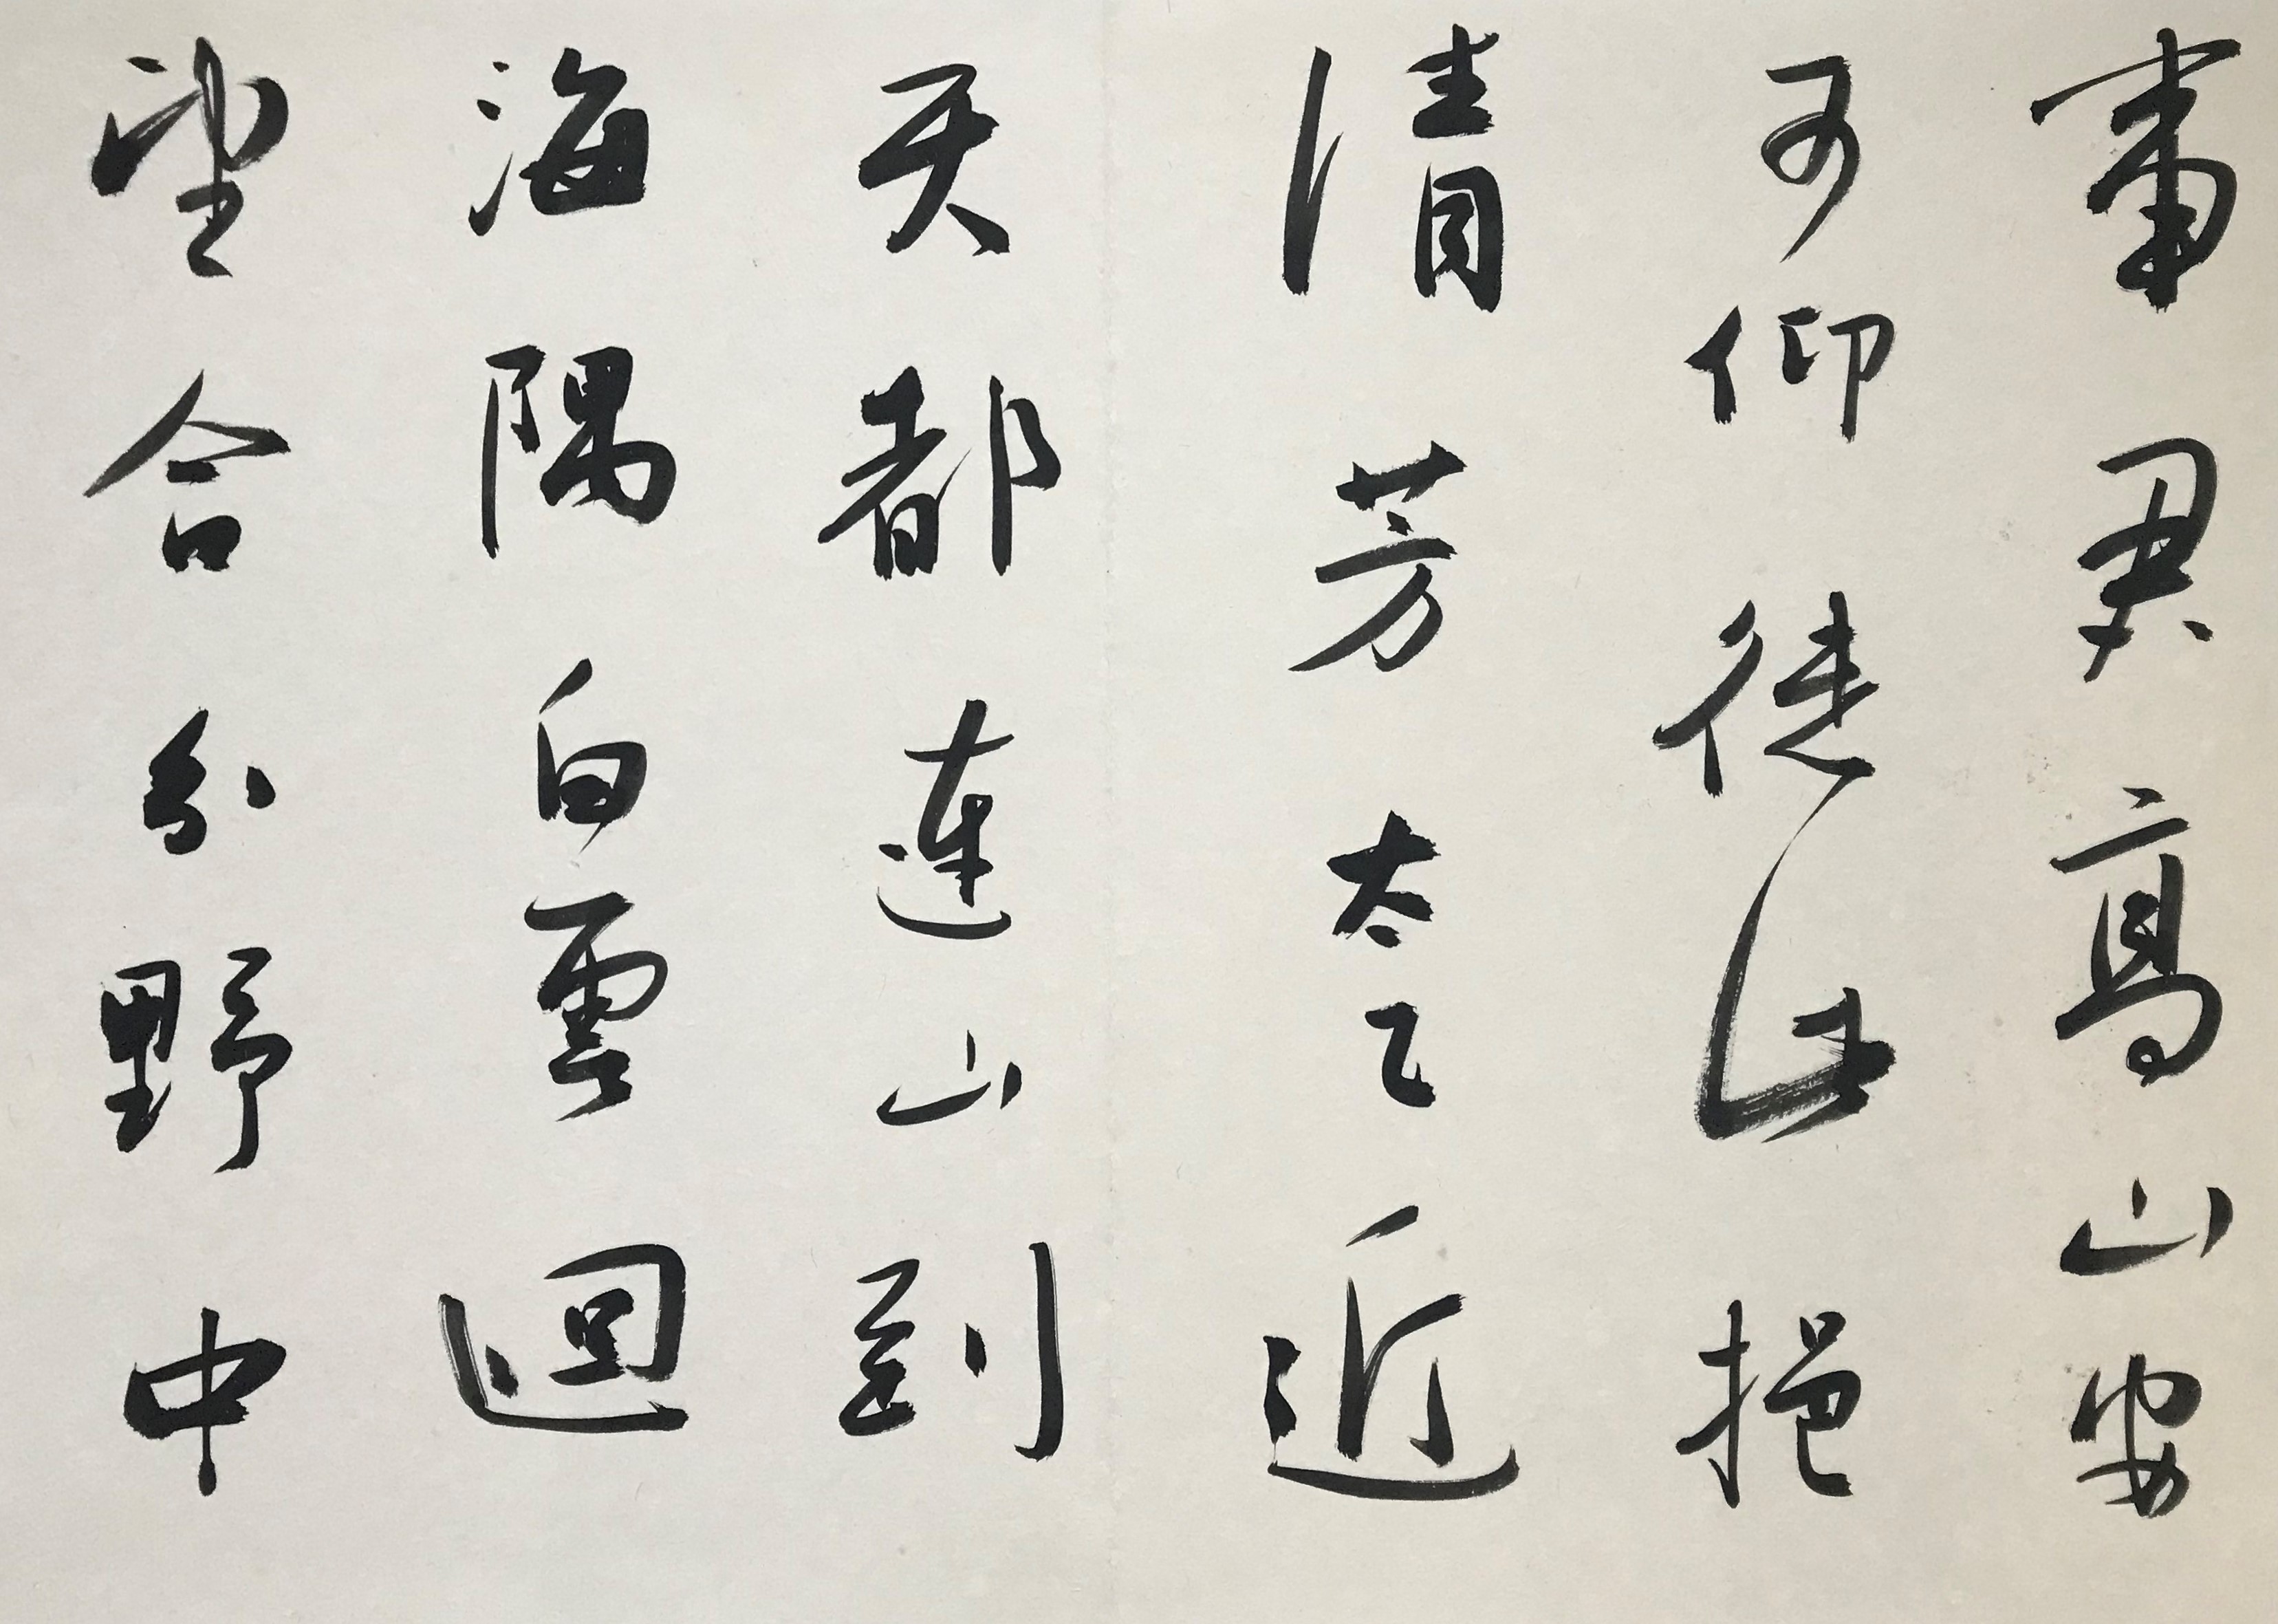 事君高山安
可仰徒此挹
清芳太乙近
天都連山到
海隅白雲迴
望合分野中